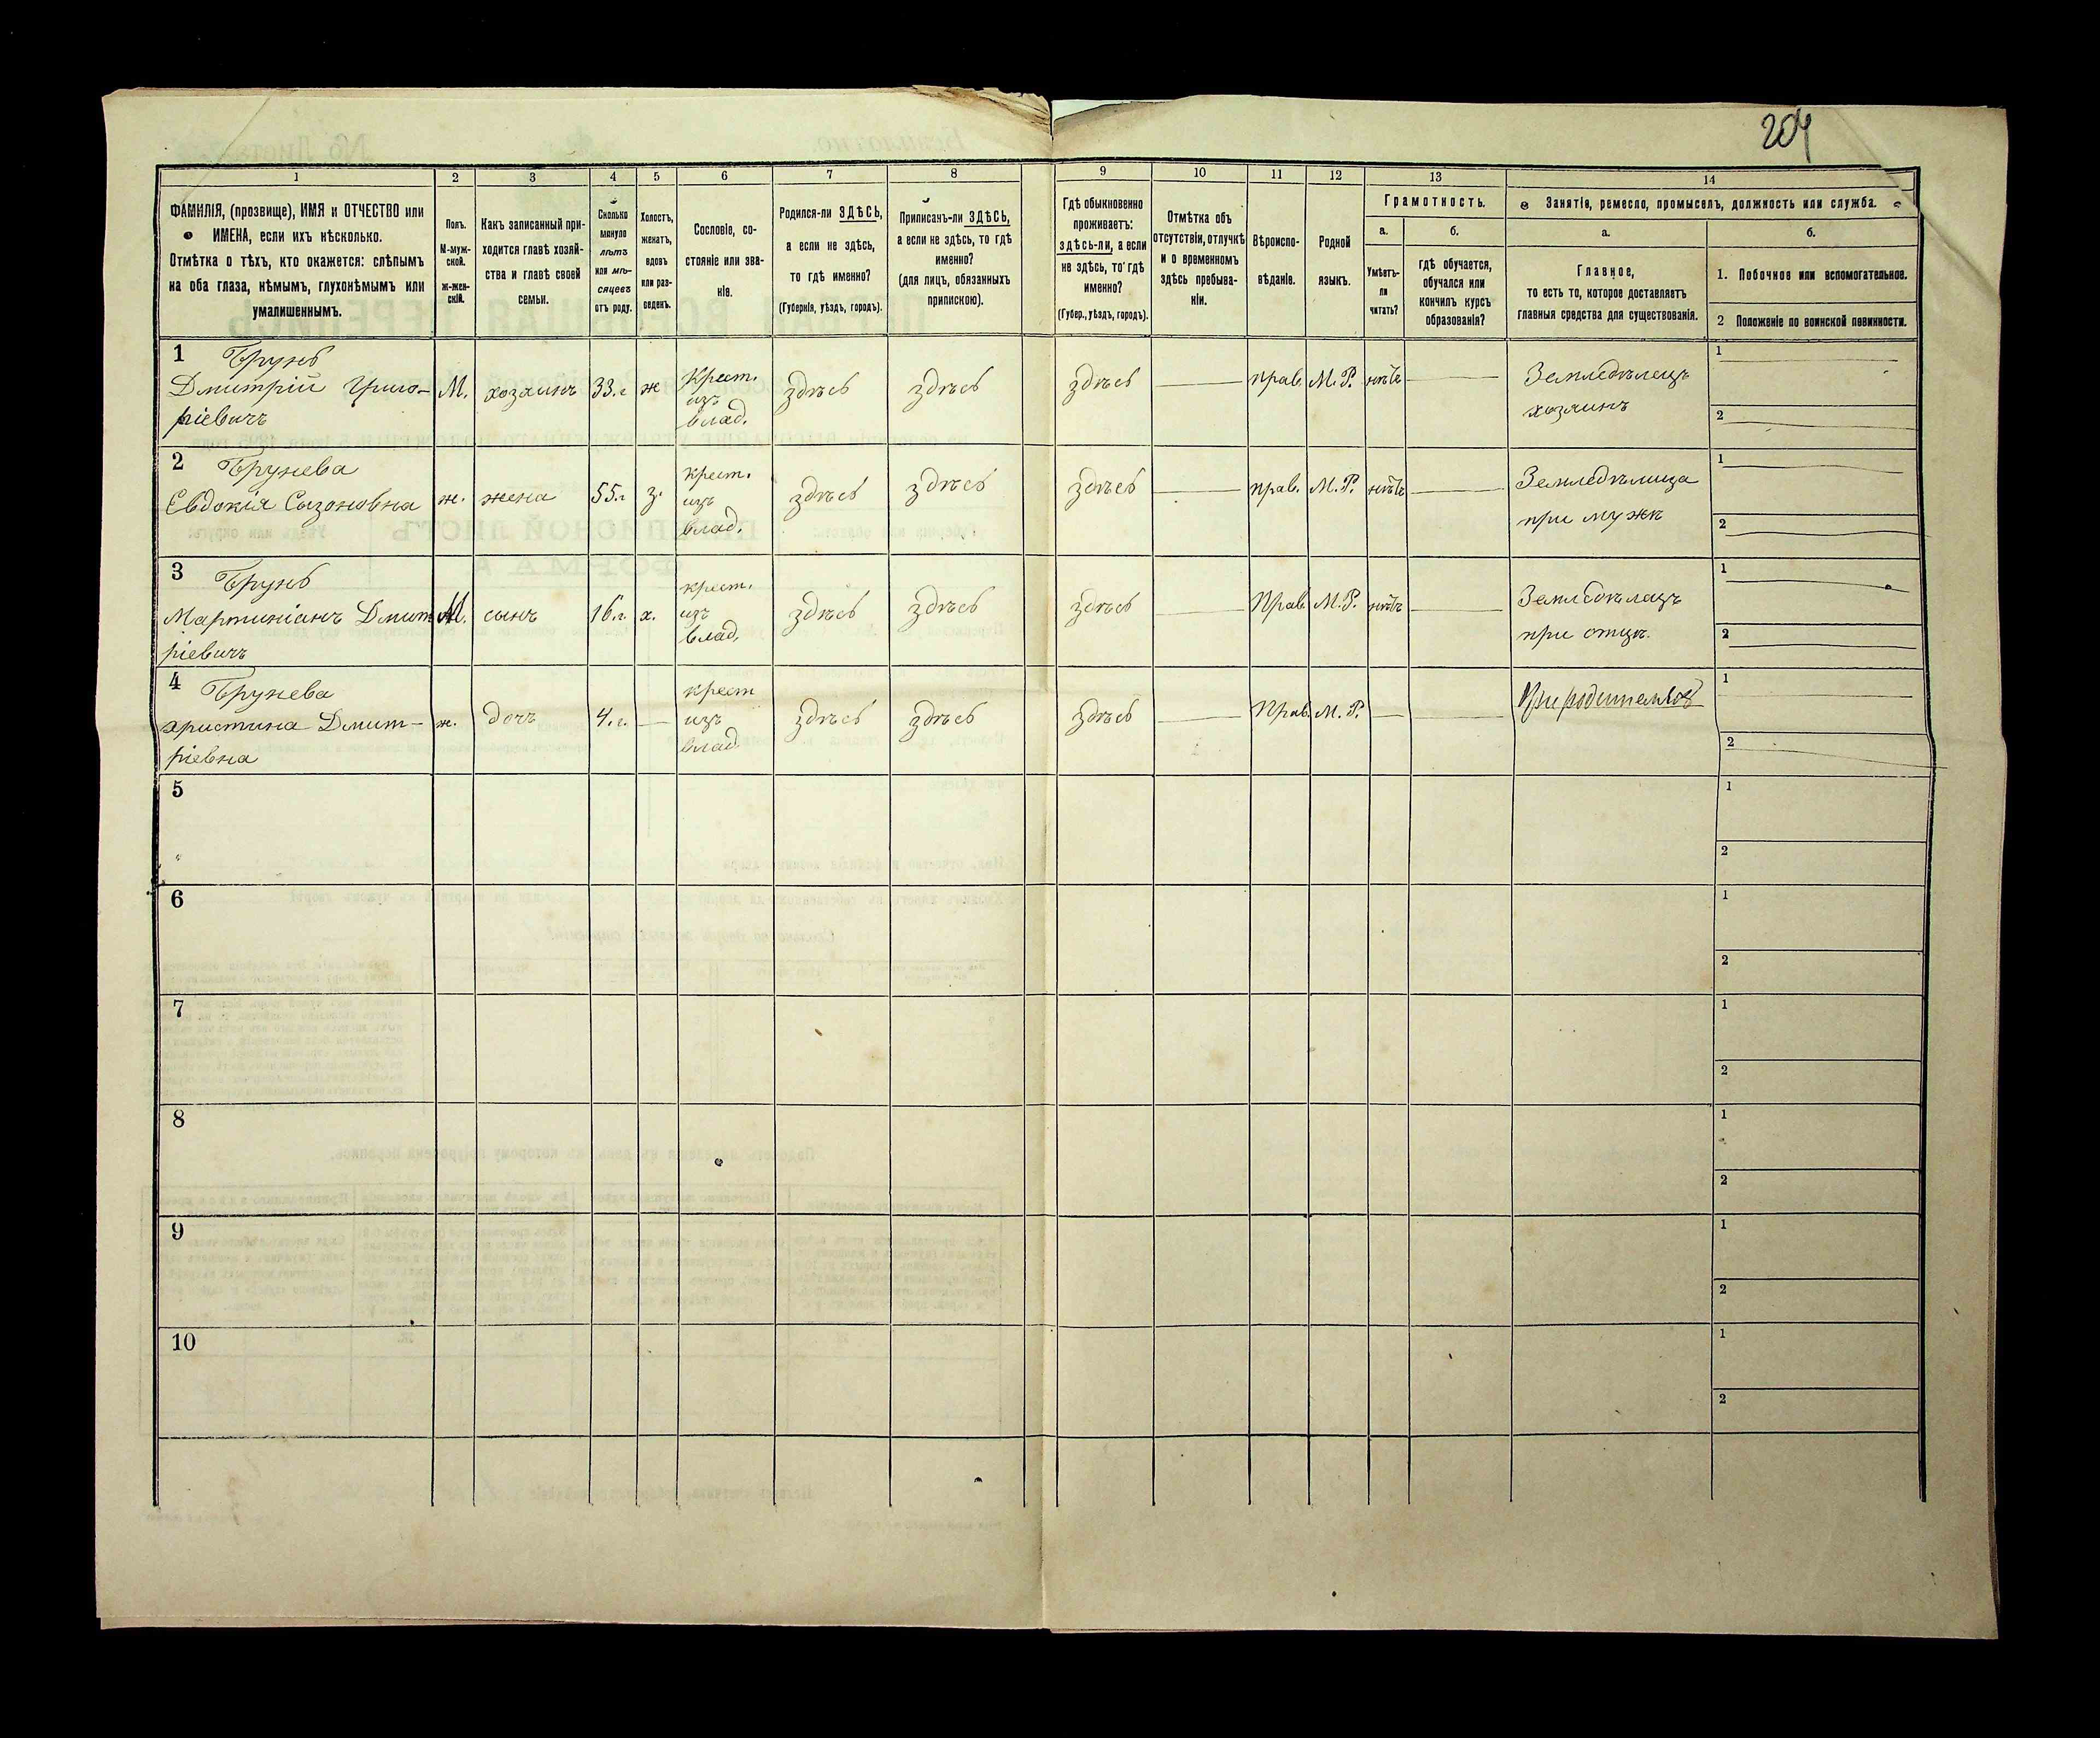 204
1 2 3 4 5 6 7 8 9 10 11 12 13 14
ФАМИЛІЯ, (прозвище), ИМЯ и ОТЧЕСТВО или
ИМЕНА, если ихъ нѣсколько.
Отмѣтка о тѣхъ, кто окажется: слѣпымъ
на оба глаза, нѣмымъ, глухонѣмымъ или
умалишеннымъ.
Полъ.
М-муж-
ской.
ж-жен-
скій.
Какъ записанный при-
ходится главѣ хозяй-
ства и главѣ своей
семьи.
Сколько
минуло
лѣтъ
или мѣ-
сяцевъ
отъ роду.
Холостъ,
женатъ,
вдовъ
или раз-
веденъ.
Сословіе, со-
стояніе или зва-
ніе.
Родился-ли ЗДѢСЬ,
а если не здѣсь,
то гдѣ именно?
(Губернія, уѣздъ, городъ).
Приписанъ-ли ЗДѢСЬ,
а если не здѣсь, то гдѣ
именно?
(для лицъ, обязанныхъ
припискою).
Гдѣ обыкновенно
проживаетъ:
здѣсь-ли, а если
не здѣсь, то гдѣ
именно?
(Губер., уѣздъ, городъ).
Отмѣтка объ
отсутствіи, отлучкѣ
и о временномъ
здѣсь пребыва-
ніи.
Вѣроиспо-
вѣданіе.
Родной
языкъ.
Грамотность.
а. б.
Умѣетъ-
ли
читать?
гдѣ обучается,
обучался или
кончилъ курсъ
образованія?
Занятіе, ремесло, промыселъ, должность или служба.
а. б.
Главное,
то есть то, которое доставляетъ
главныя средства для существованія.
1. Побочное или вспомогательное.
2 Положеніе по воинской повинности.
1 Грунь
Дмитрій Григо-
ріевичъ
М. хозяинъ 33.г ж
Крест.
изъ
влад.
здѣсь здѣсь здѣсь прав. М.Р. нѣтъ
Земледѣлецъ
хозяинъ
1
2
2 Грунева
Евдокія Сызоновна
ж. жена 55.г з.
крест.
изъ
влад.
здѣсь здѣсь здѣсь прав. М.Р. нѣтъ
Земледѣлица
при мужѣ
1
2
3 Грунь
Мартиніанъ Дмит
ріевичъ
М. сынъ 16.г. х.
крест.
изъ
влад.
здѣсь здѣсь здѣсь Прав. М.Р. нѣтъ
Земледѣлецъ
при отцѣ.
1
2
4 Грунева
христина Дмит-
ріевна
ж. дочъ 4.г.
крест
изъ
влад
здѣсь здѣсь здѣсь Прав. М.Р.
При родителяхъ
1
2
5
1
2
6
1
2
7
1
2
8
1
2
9
1
2
10
1
2